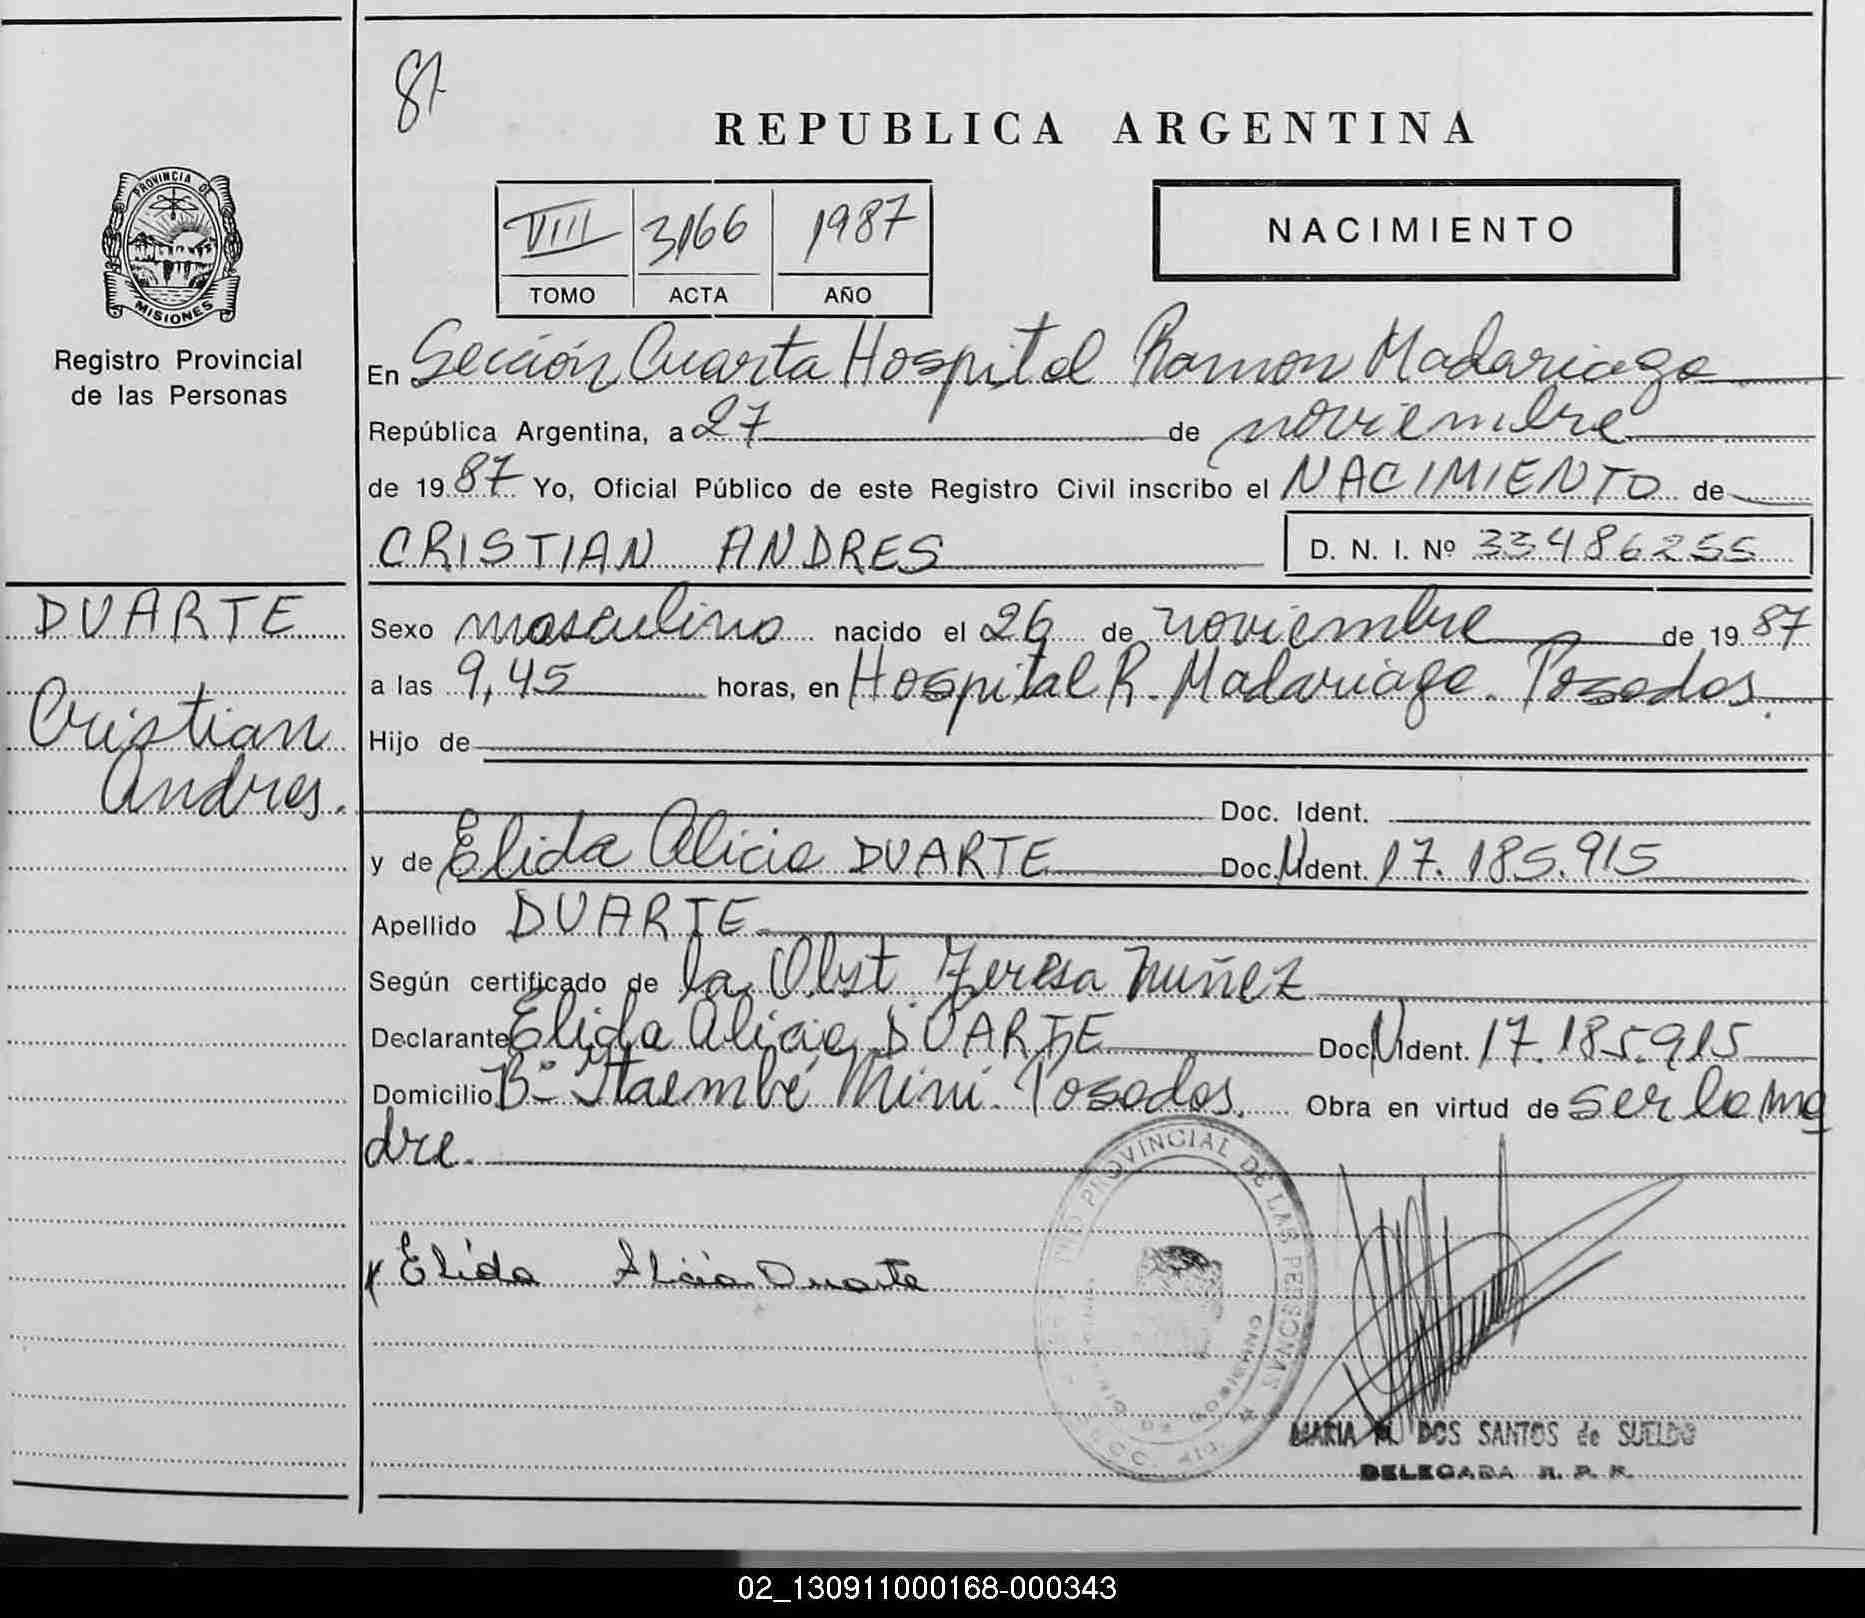 87
REPUBLICA ARGENTINA
PROVINCIA DE
MISIONES
Registro Provincial
de las Personas
VIII 3166 1987
TOMO ACTA AÑO
NACIMIENTO
En Sección Cuarta Hospital Ramon Madariaga
República Argentina, a 27 de noviembre
de 1987 Yo, Oficial Público de este Registro Civil inscribo el NACIMIENTO de
CRISTIAN ANDRES D. N. I. Nº 33486255
DUARTE
Cristian
Andres.
Sexo masculino nacido el 26 de noviembre de 1987
a las 9,45 horas, en Hospital R. Madariaga. Posadas.
Hijo de
Doc. Ident.
y de Elida Alicia DUARTE Doc. N Ident. 17.185.915
Apellido DUARTE
Según certificado de la Obst Teresa Nuñez
Declarante Elida Alicia DUARTE Doc. N Ident. 17.185.915
Domicilio Bº Itaembé Mini. Posadas. Obra en virtud de ser la ma
dre.
x Elida Alicia Duarte
PROVINCIAL DE LAS PERSONAS
MARIA M. DOS SANTOS de SUELDO
DELEGADA R. P. P.
02_130911000168-000343